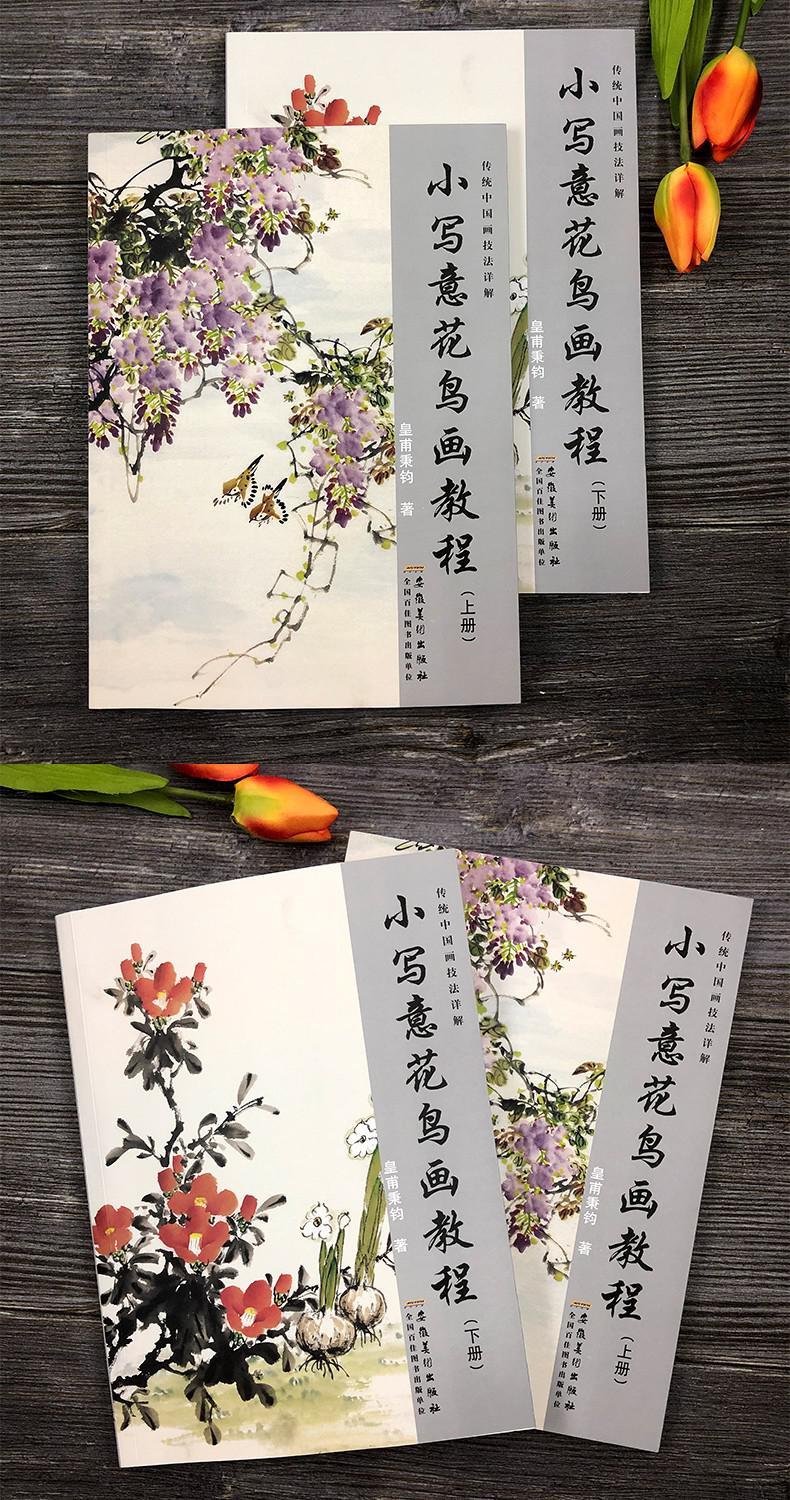 传统中国画技法详解
小写意花鸟画教程(上册)
皇甫秉钧 著
安徽美术出版社
全国百佳图书出版单位
传统中国画技法详解
小写意花鸟画教程(下册)
皇甫秉钧 著
安徽美术出版社
全国百佳图书出版单位
传统中国画技法详解
小写意花鸟画教程(下册)
皇甫秉钧 著
安徽美术出版社
全国百佳图书出版单位
传统中国画技法详解
小写意花鸟画教程(上册)
皇甫秉钧 著
安徽美术出版社
全国百佳图书出版单位